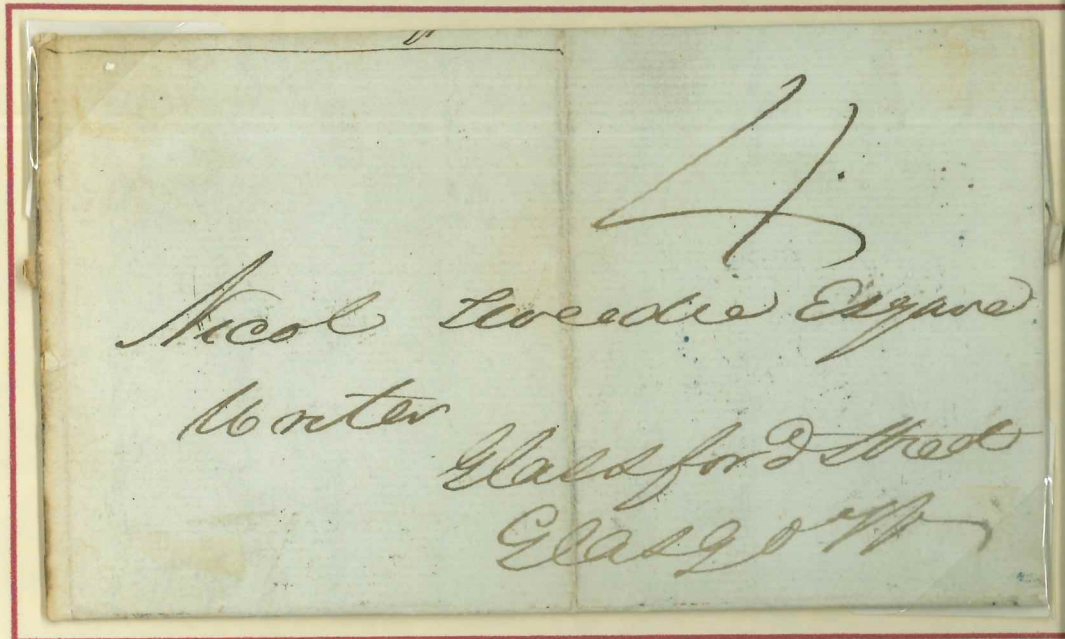 4
Nicol Tweedie Esquire
Writer
Glassford Street
Glasgow